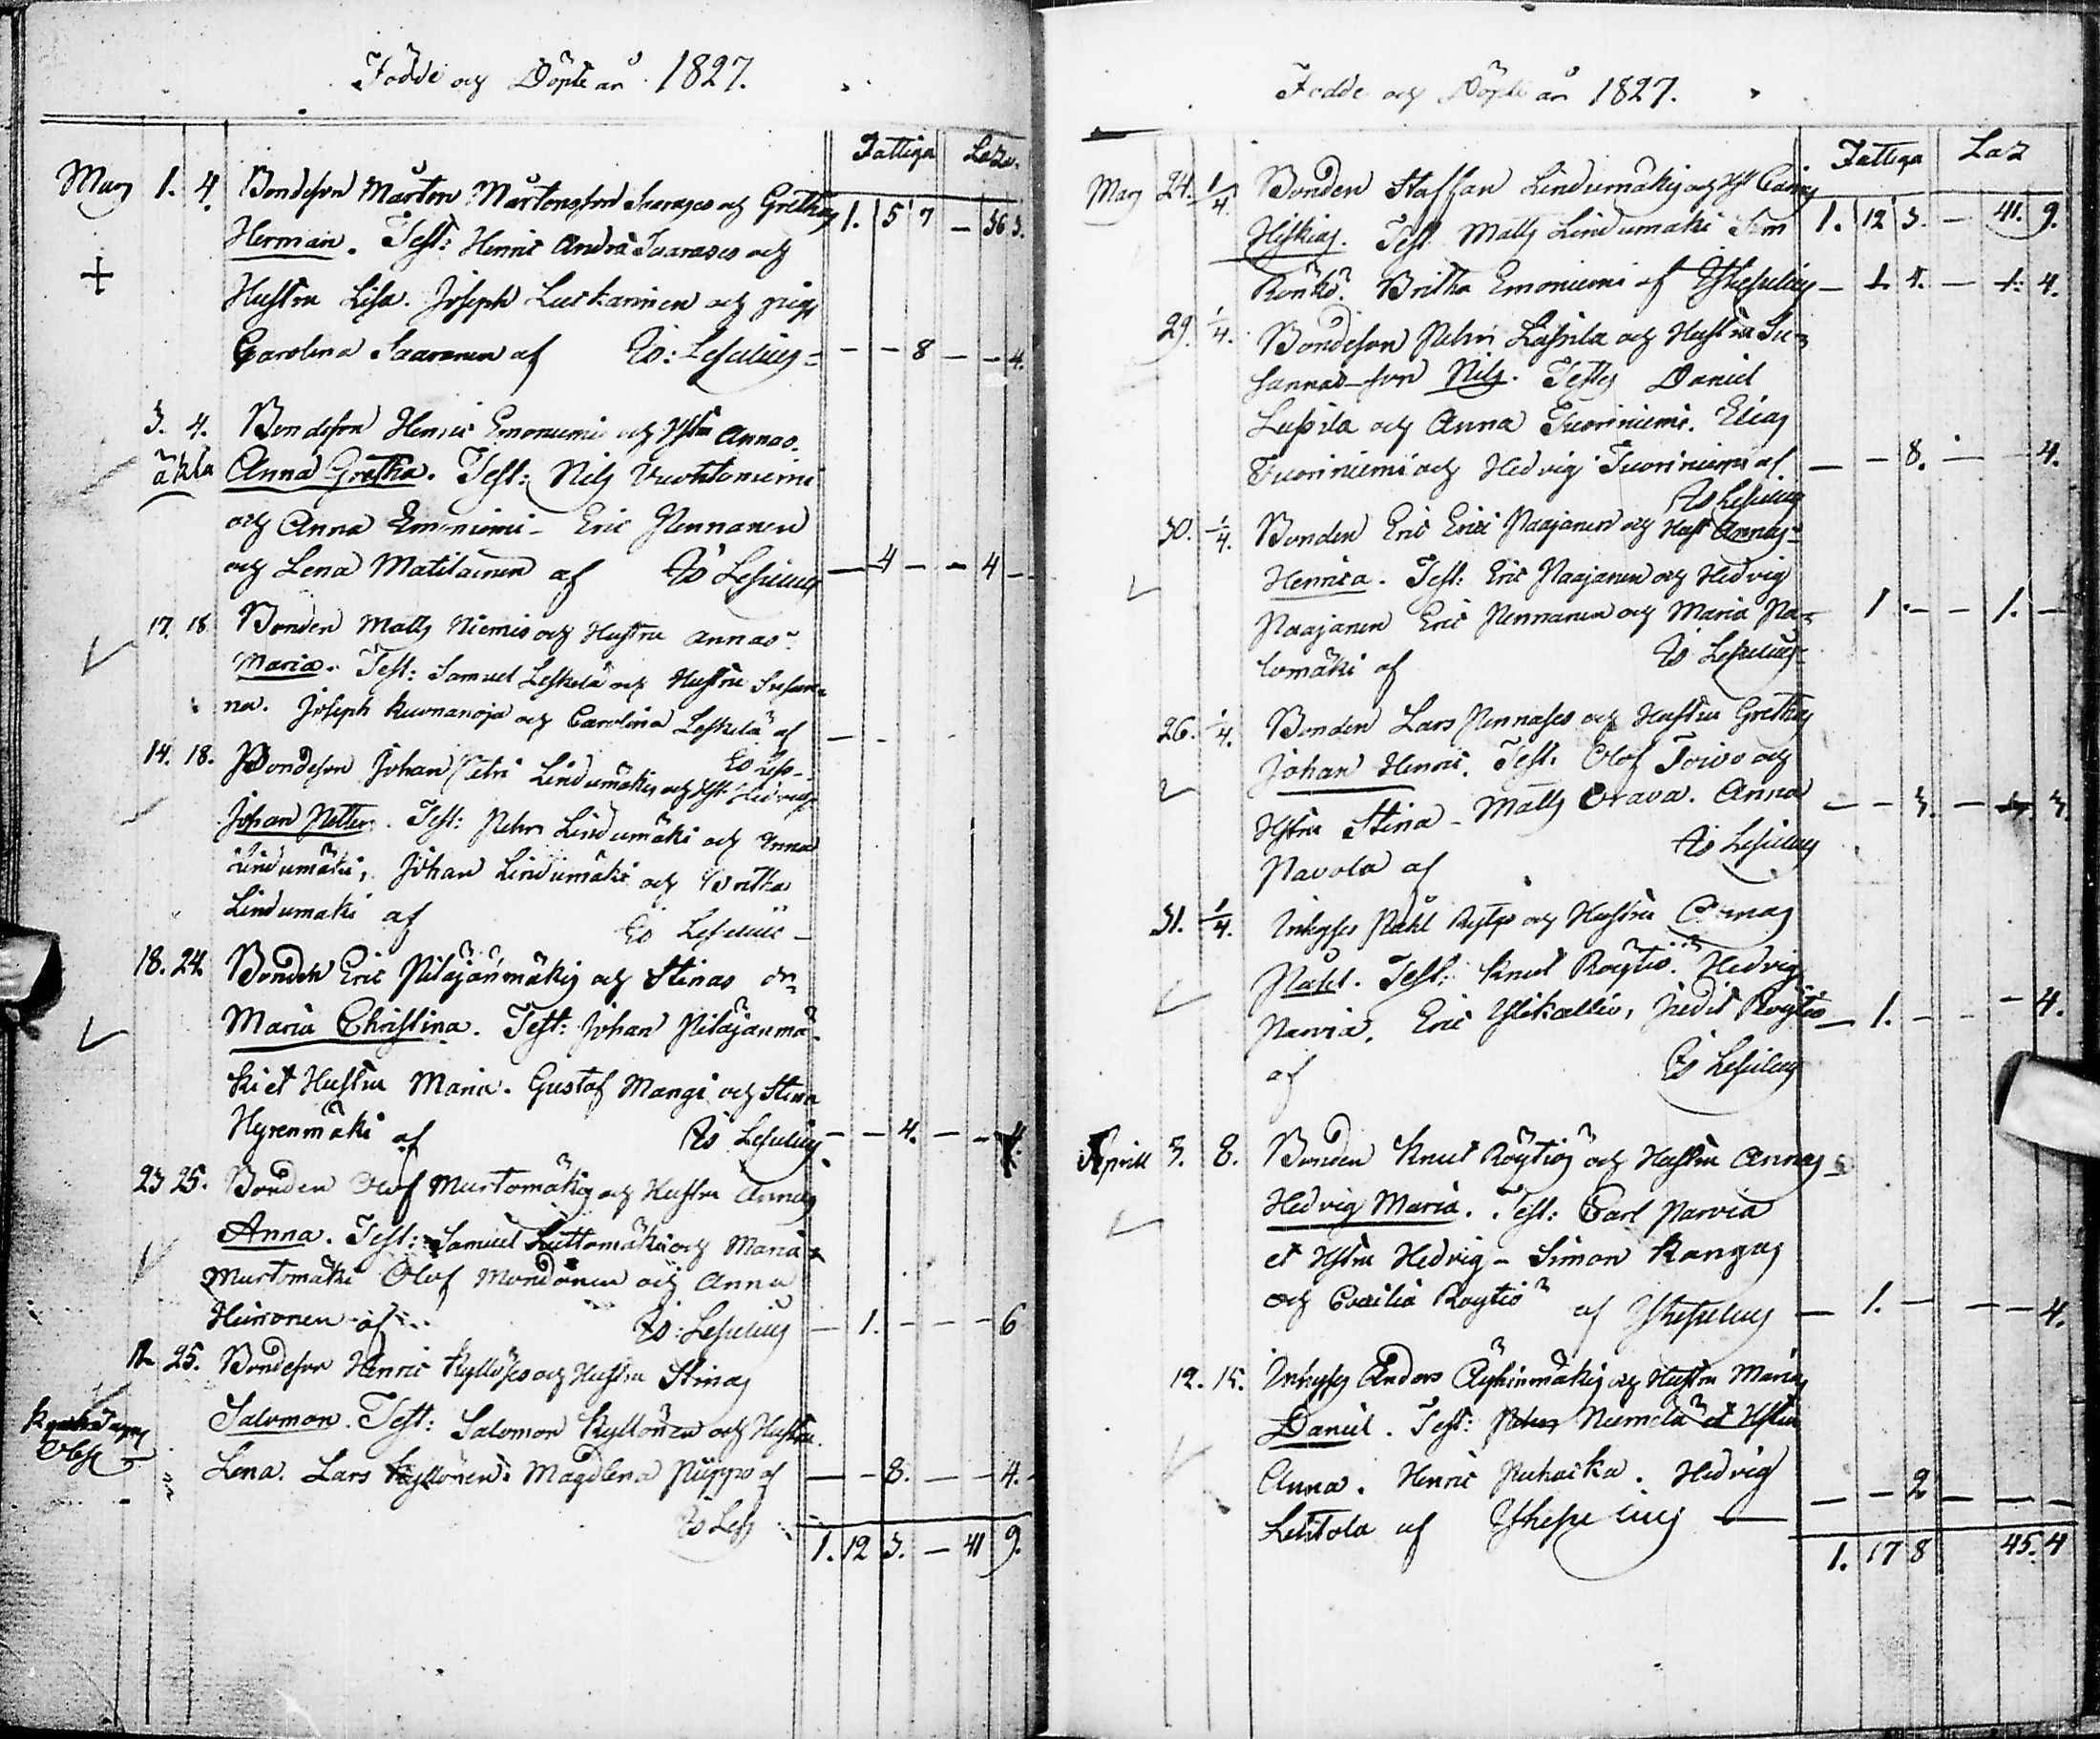 Födde och Döpte år 1827.
Fattiga Laza.
Mars 1. 4. Bondeson Mårten Mårtensson Saarases och Grethas 1. 5 7 – 36 3.
Herman. Test: Henric Andrs Saarases och
Hustru Lisa. Joseph Luckarinen och pig.
Carolina Saaranen af Eod: Lesselius – – – 8 – – 4.
3. 4. Bondeson Henric Emoniemis och Hstru Annas.
äkta Anna Gretha. Test: Nils Vuohtoniemi
och Anna Emoniemi – Eric Pennanen
och Lena Matilainen af Lesselius – 4 – – 4 –
17. 18. Bonden Matts Niemis och Hustru Annas
Maria. Test: Samuel Leskelä och Hustru Susan
na. Joseph Kuvnanoja och Carolina Leskelä af
14. 18. Bondeson Johan Petri Lindumäkis och Hst. Hedvigs
Johan Petter. Test: Pehr Lindumäki och Anna
Lindumäki, Johan Lindumäki och Britha
Lindumäki af Lesselius –
18. 24. Bonden Eric Pitäjänmäkis och Stinas dr
Maria Christina. Test: Johan Pitäjänmä
ki et Hustru Maria. Gustaf Mangi och Stina
Hyrenmäki af Lesselius – – 4. – – 4.
23 25. Bonden Olof Murtomäkis och Hustru Annas
Anna. Test: Samuel Luttomäki och Maria
Murtomäki Olof Mondonen och Anna
Heinonen af Lesselius – 1. – – – 6
12 25. Bondeson Henric Kyllöses och Hustru Stinas
Salomon. Test: Salomon Kyllönen och Hustru
Lena. Lars Kyllönen. Magdlena Piippo af – – 8. – – 4.
Less
1. 12 3. – 41 9.
Födde och Döpte år 1827.
Fattiga Laz
Mars 24. 1/4. Bonden Staffan Lindumäkis och Hst Caisas
Hiskias. Test Matts Lindumäki Sim 1. 12 3. – 41. 9.
Rönkö. Britha Emoniemi af Lesselius – 1. 4. – 1. 4.
29. 1/4. Bondeson Pehr Lassila och Hustru Su
sannas son Nils. Testes Daniel
Lassila och Anna Tuoriniemi. Elias
Tuoriniemi och Hedvig Tuoriniemi af – – 8. – – 4.
Lesselius
30. 1/4. Bonden Eric Erici Paajanen och Hust Annas
Henrica. Test: Eric Paajanen och Hedvig
Paajanen Eric Pennanen och Maria Pa 1. – – 1. –
lomäki af Lesselius
26. 1/4. Bonden Lars Pennases och Hustru Grethas
Johan Henric. Test. Olof Toivo och
Hstru Stina – Matts Orava. Anna – – 3. – – 3.
Pavola af Lesselius
31. 1/4. Inhyses Påhl och Hustru Annas
Påhl. Test: Knut Röytiö. Hedvig
Parvia. Eric Ylikallio, Judit Röytiö – 1. – – – 4.
af Lesselius
Aprill 3. 8. Bonden Knut Röytiös och Hustru Annas
Hedvig Maria. Test: Carl Parvia
et Hstru Hedvig – Simon Kangas
och Cecilia Röytiö af Lesselius – 1. – – – 4.
12. 15. Inhyses Anders Äyhinmäkis och Hustru Marias
Daniel. Test: Pehr Niemelä et Hstru
Anna. Henric Puhakka. Hedvig – – 2 – – –
Lehtola af
1. 17 8 45. 4